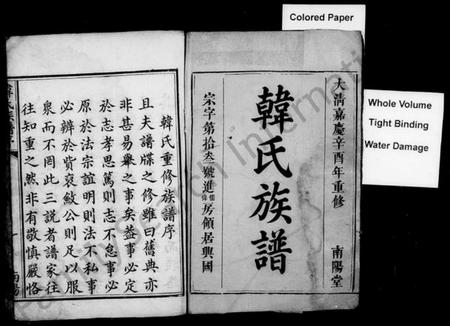 Colored Paper
Whole Volume
Tight Binding
Water Damage
大清嘉慶辛酉年重修
南陽堂
韓氏族譜
宗字第拾叁號進儒偉房領居興國
韓氏重修族譜序
且夫譜牒之修雖曰舊典亦
非甚易舉之事矣葢事必定
於志孝思篤則志不怠事必
原於法宗誼明則法不私事
必辨於貲裒斂公則足以服
衆而不罔此三説者譜家往
往知重之然非有敬慎嚴恪